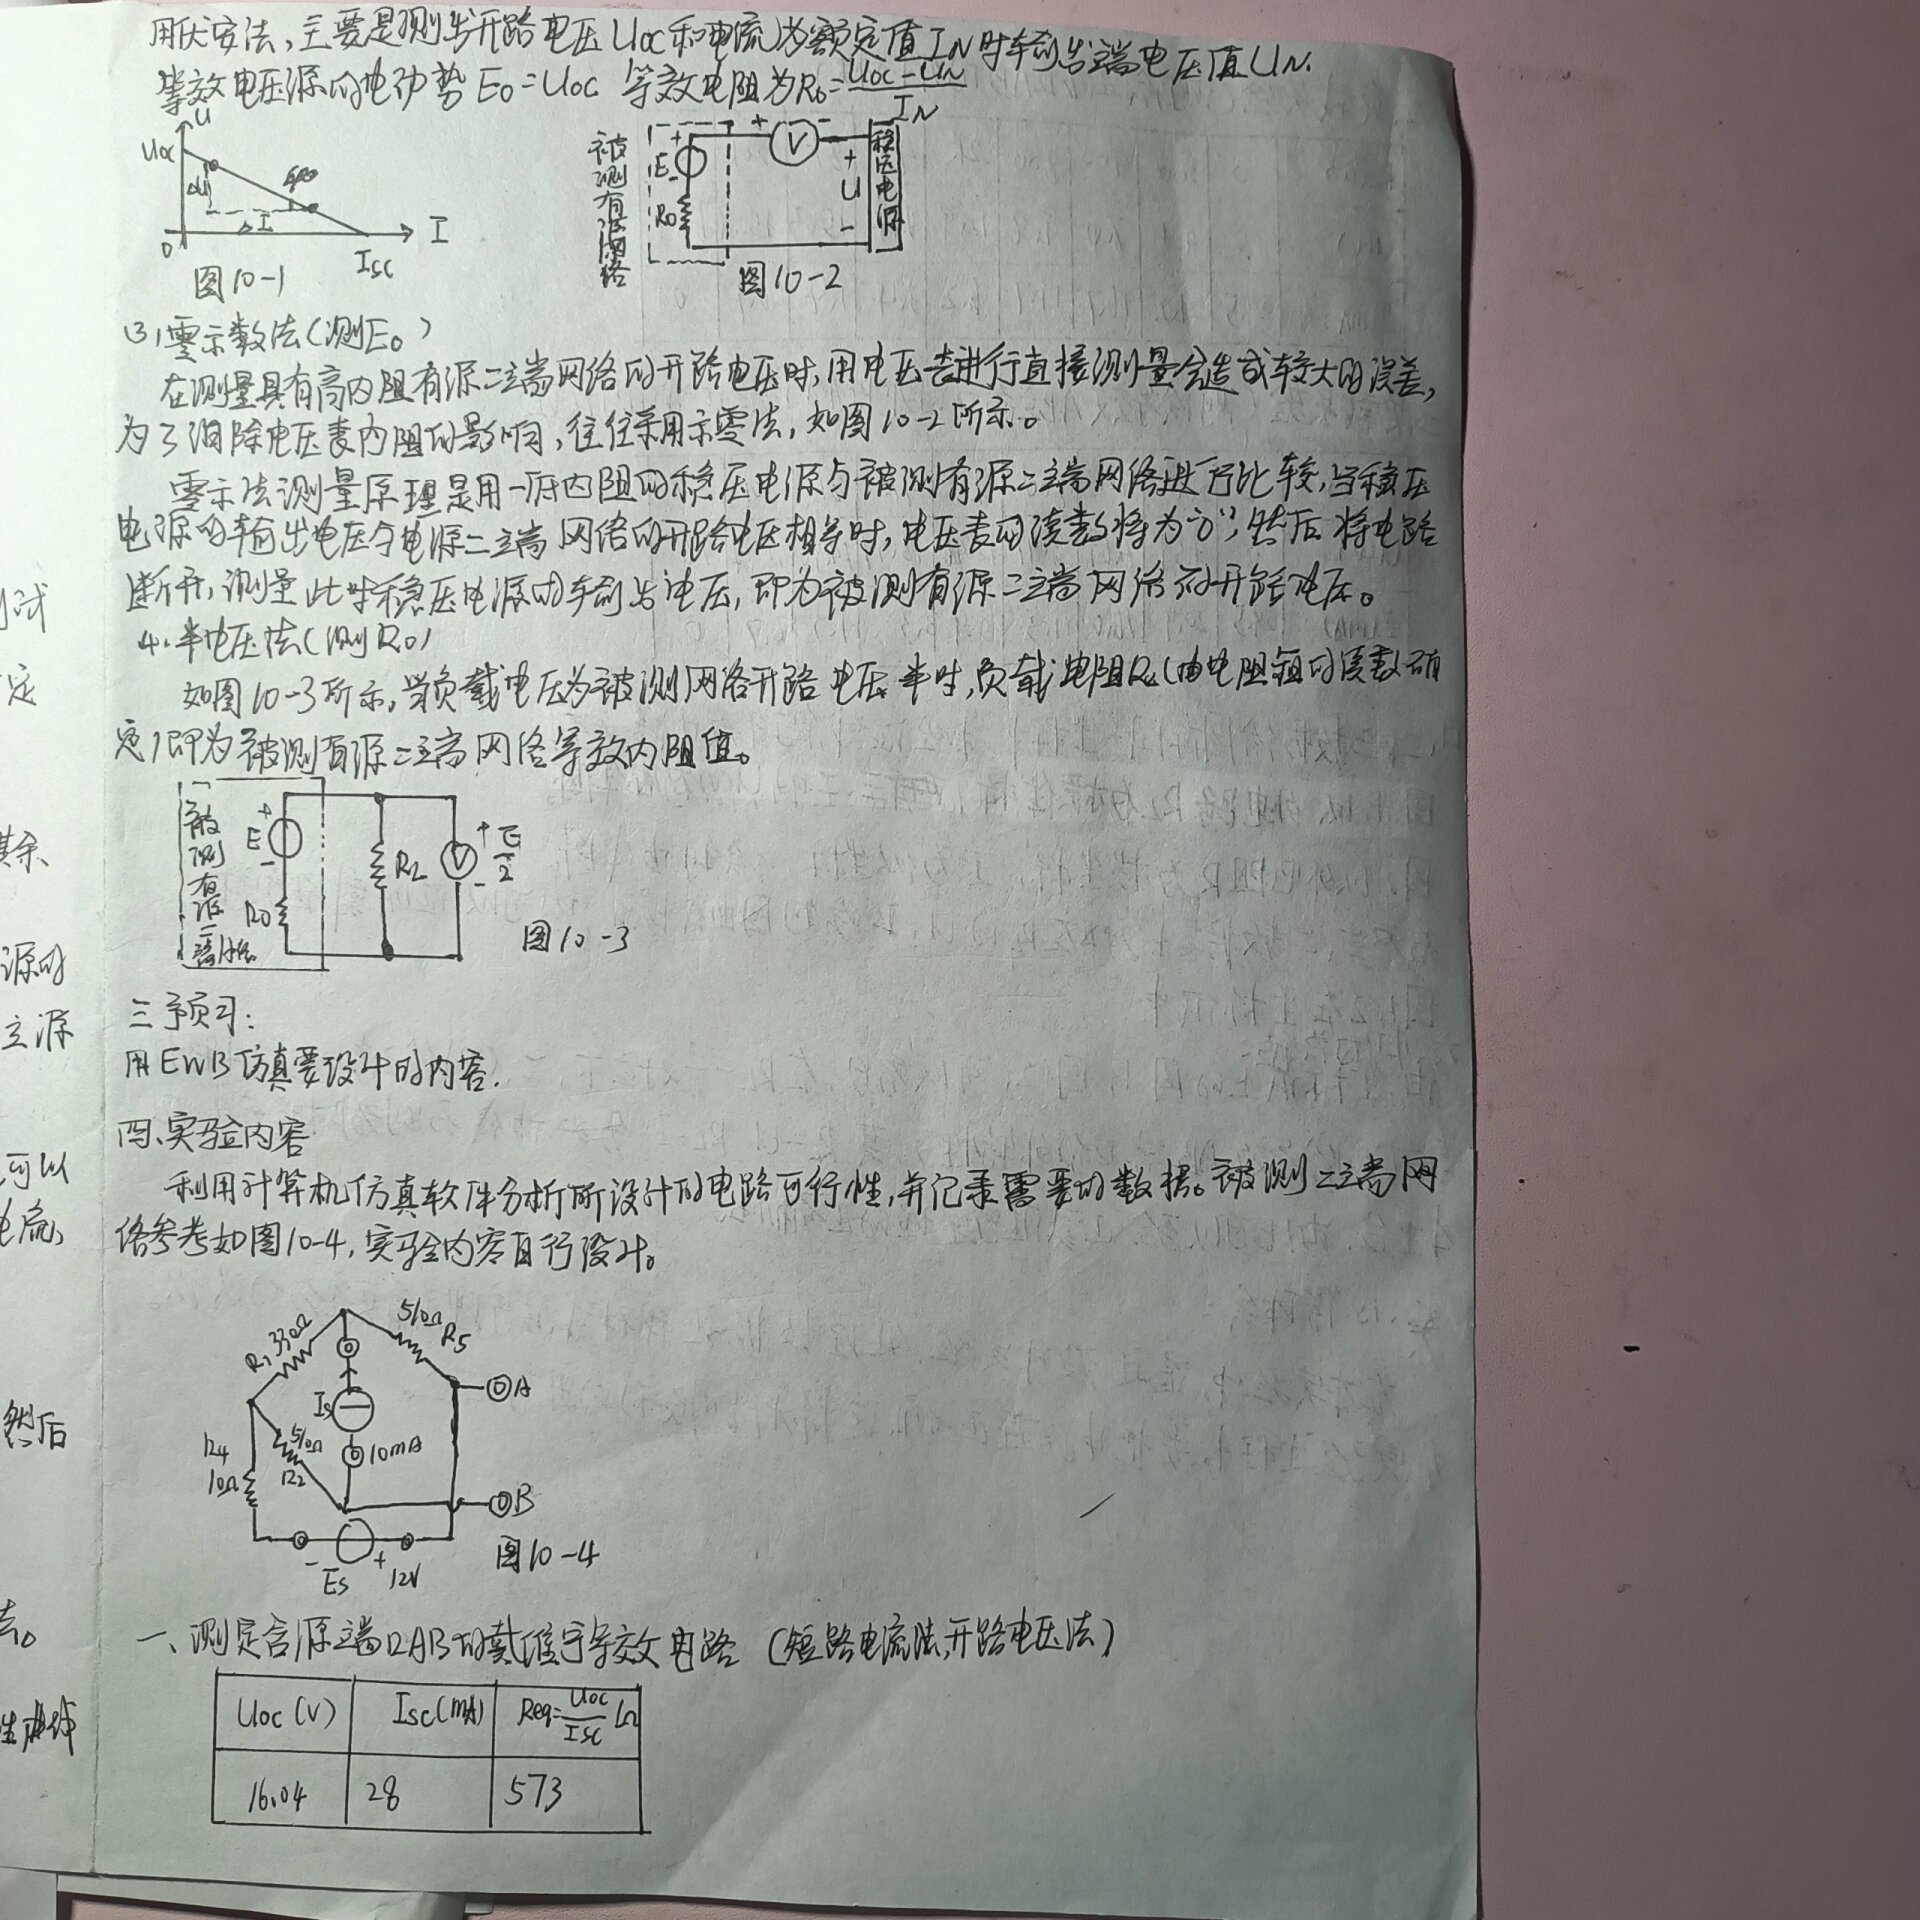 用伏安法,主要是测出开路电压Uoc和电流为额定值IN时输出端电压值UN.
等效电压源的电动势E0=Uoc 等效电阻为R0=(Uoc-UN)/IN
U
Uoc
ΔU
φ
ΔI
O
Isc
I
图10-1
被测有源网络
E
+
-
R0
+
V
-
+
U
-
稳压电源
图10-2
(3)零示数法(测E0)
在测量具有高内阻有源二端网络的开路电压时,用电压表进行直接测量会造成较大的误差,
为了消除电压表内阻的影响,往往采用示零法,如图10-2所示。
零示法测量原理是用一低内阻的稳压电源与被测有源二端网络进行比较,当稳压
电源的输出电压与电源二端网络的开路电压相等时,电压表的读数将为“0”,然后将电路
断开,测量此时稳压电源的输出电压,即为被测有源二端网络的开路电压。
4.半电压法(测R0)
如图10-3所示,当负载电压为被测网络开路电压半时,负载电阻RL(由电阻箱的读数确
定)即为被测有源二端网络等效内阻值。
被测有源二
E
+
-
R0
RL
V
+
E/2
-
图10-3
三预习:
用EWB仿真要设计的内容.
四、实验内容
利用计算机仿真软件分析所设计的电路可行性,并记录需要的数据。被测二端网
络参考如图10-4,实验内容自行设计。
R1 330Ω
510Ω
R5
A
Is
10mA
R4
10Ω
510Ω
R2
B
-
Es
+
12V
图10-4
一、测定含源端口AB的戴维宁等效电路(短路电流法,开路电压法)
Uoc(V) Isc(mA) Req=Uoc/Isc Ω
16.04 28 573
测试
定
其余
源的
立源
可以
电流,
然后
法。